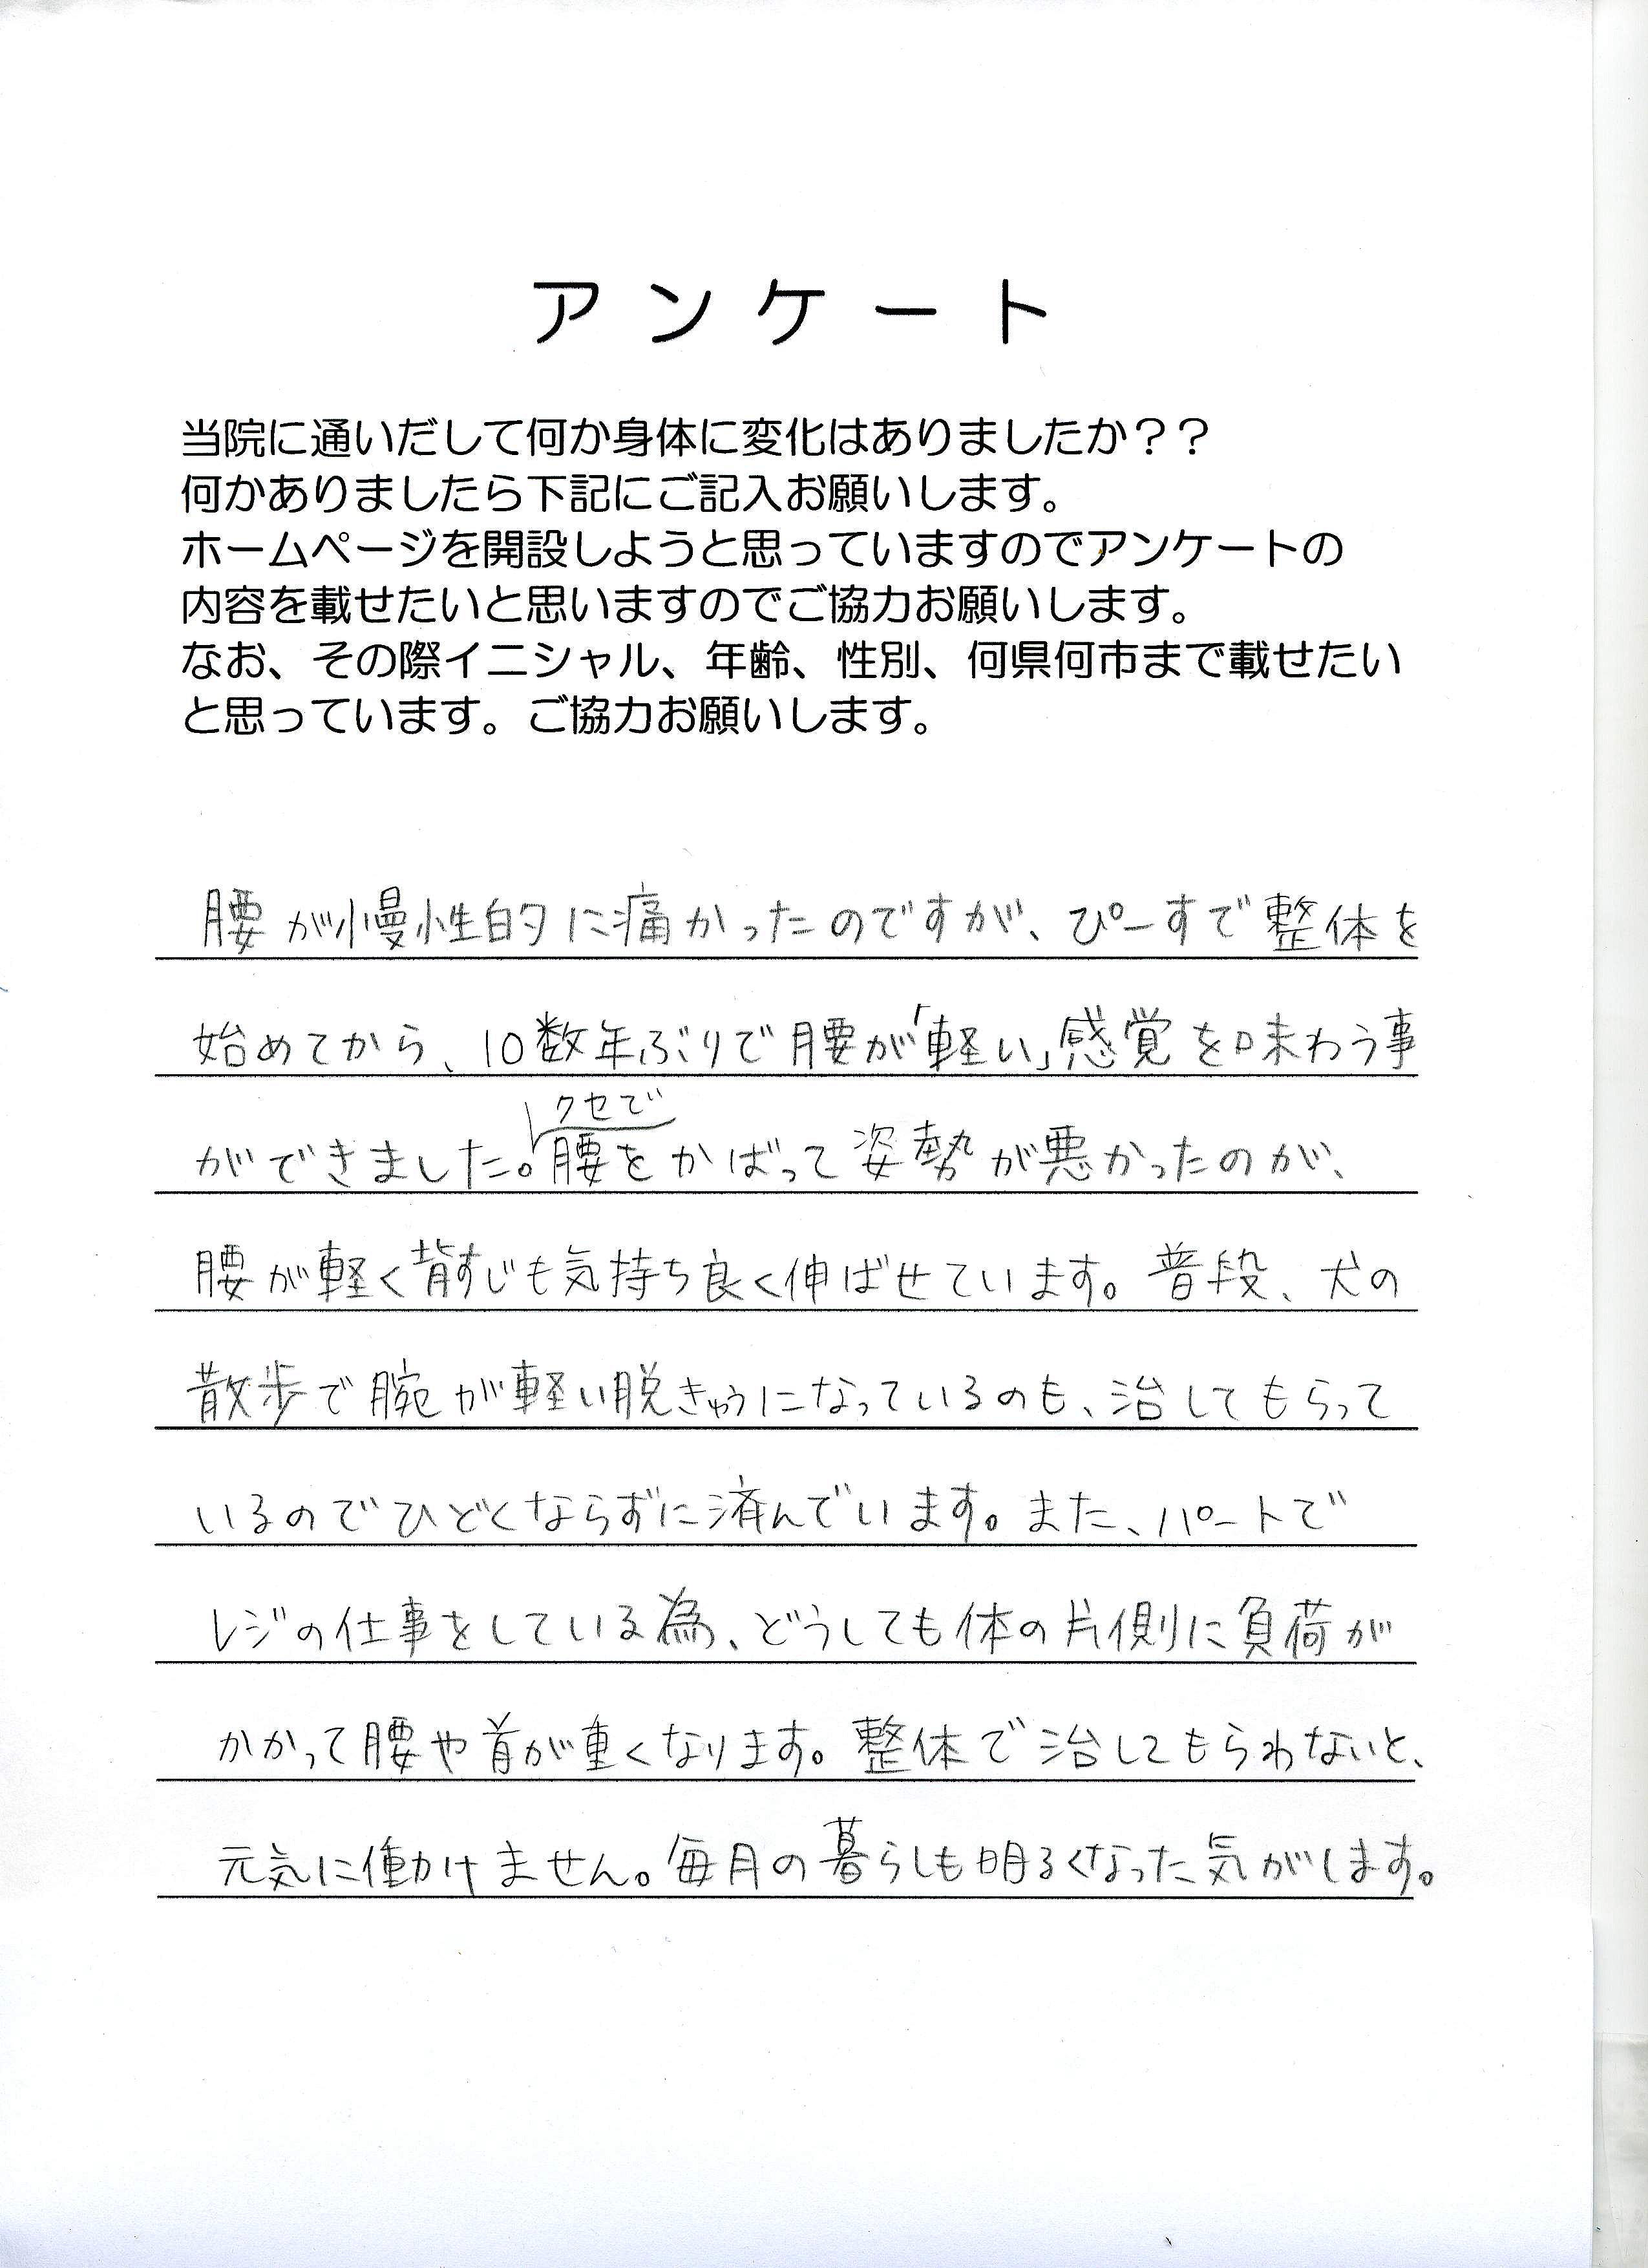 アンケート
当院に通いだして何か身体に変化はありましたか？？
何かありましたら下記にご記入お願いします。
ホームページを開設しようと思っていますのでアンケートの
内容を載せたいと思いますのでご協力お願いします。
なお、その際イニシャル、年齢、性別、何県何市まで載せたい
と思っています。ご協力お願いします。
腰が慢性的に痛かったのですが、ぴーすで整体を
始めてから、10数年ぶりで腰が「軽い」感覚を味わう事
クセで
ができました。腰をかばって姿勢が悪かったのが、
腰が軽く背すじも気持ち良く伸ばせています。普段、犬の
散歩で腕が軽い脱きゅうになっているのも、治してもらって
いるのでひどくならずに済んでいます。また、パートで
レジの仕事をしている為、どうしても体の片側に負荷が
かかって腰や首が重くなります。整体で治してもらわないと、
元気に働けません。毎月の暮らしも明るくなった気がします。